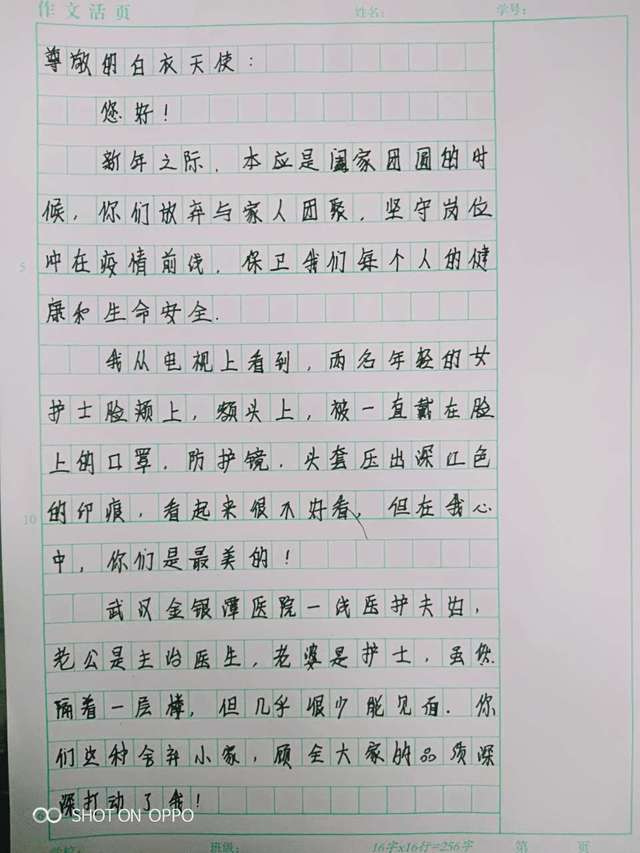 作文活页 姓名: 学号:
尊敬的白衣天使:
您好!
新年之际,本应是阖家团圆的时
候,你们放弃与家人团聚,坚守岗位
冲在疫情前线,保卫我们每个人的健
康和生命安全.
我从电视上看到,两名年轻的女
护士脸颊上,额头上,被一直戴在脸
上的口罩.防护镜.头套压出深红色
的印痕,看起来很不好看,但在我心
5
中,你们是最美的!
10
武汉金银潭医院一线医护夫妇,
老公是主治医生,老婆是护士,虽然
隔着一层楼,但几乎很少能见面.你
们这种舍弃小家,顾全大家的品质深
深打动了我!
SHOT ON OPPO
学校: 班级: 16字x16行=256字 第 页